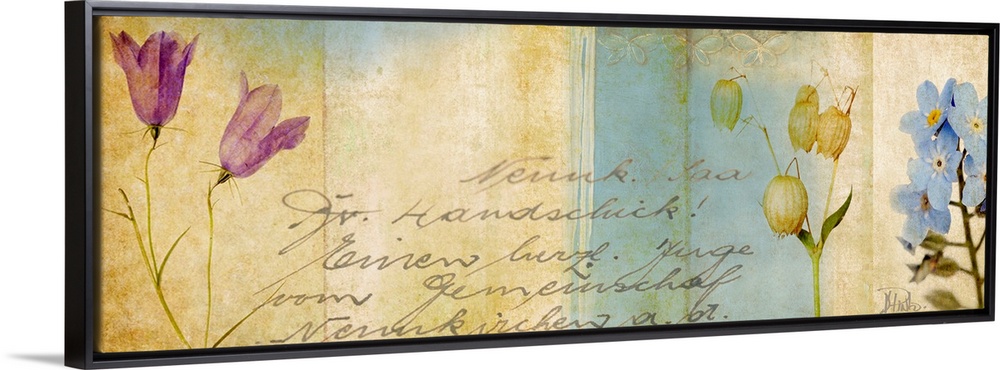 Neunk. Saa
Dr. Handschick!
Einen herzl.
vom Gemeinschaf
Neunkirchen a. d.